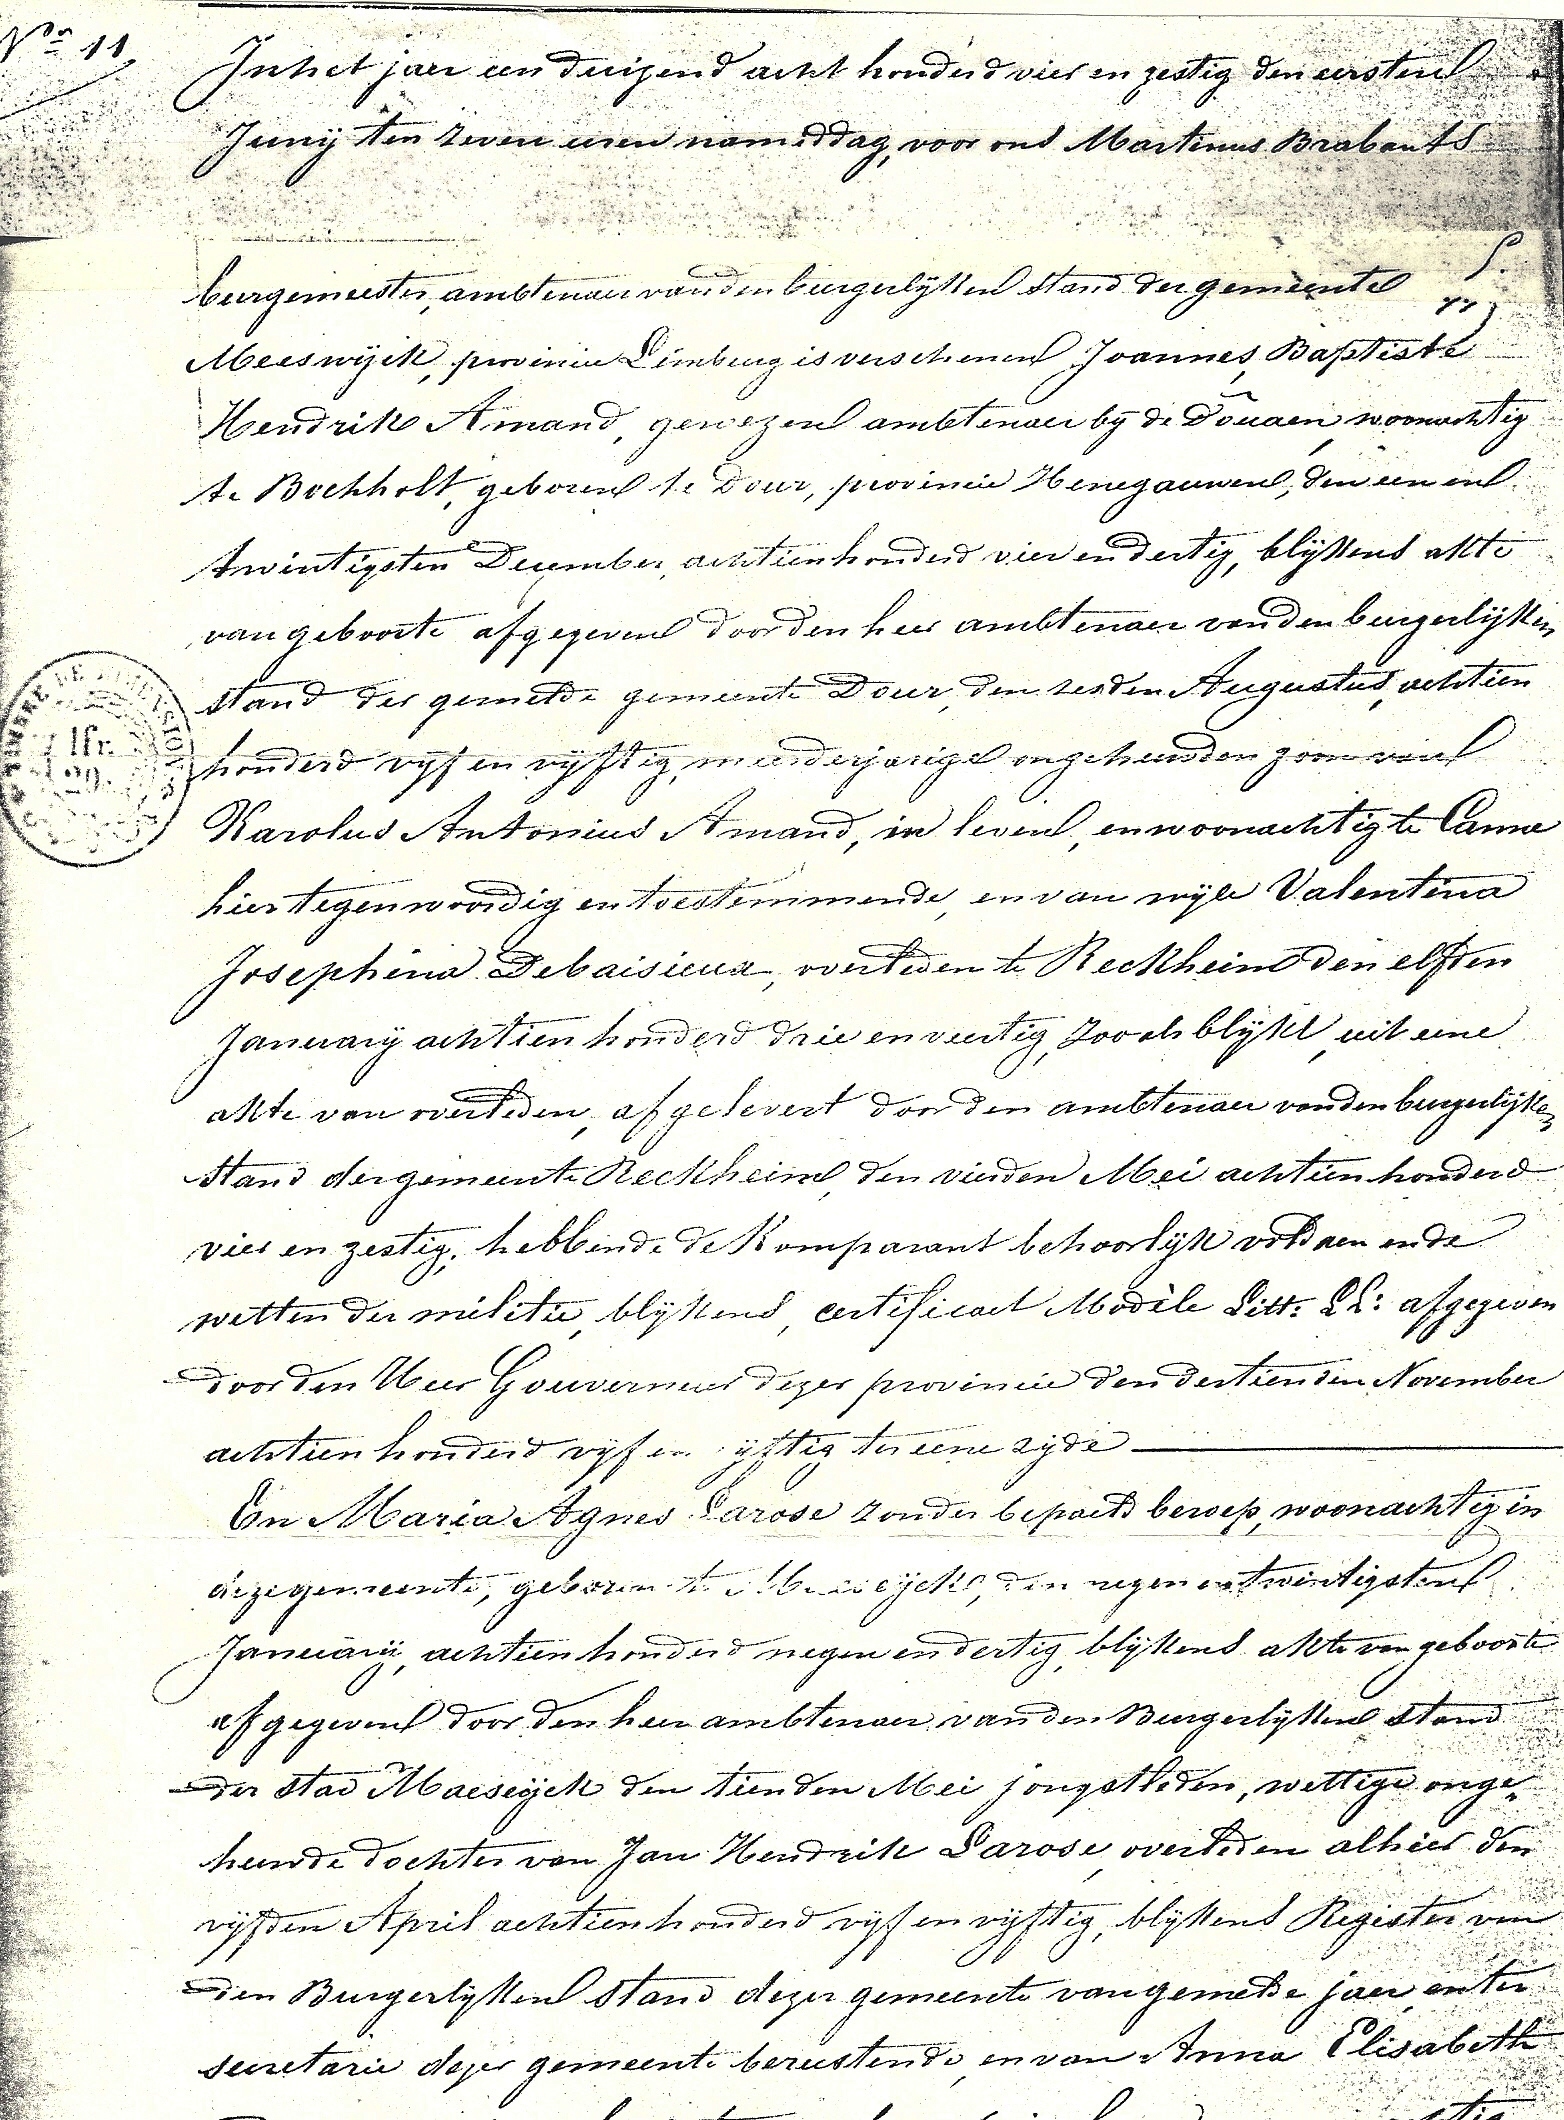 No 11
In het jaer een duizend acht honderd vier en zestig den eersten
Junij ten zeven uren namiddag, voor ons Martinus Brabants
burgemeester, ambtenaer van den burgerlykken stand der gemeente
Meeswijck, provincie Limburg is verschenen Joannes, Baptiste
Hendrik Amand, gewezen ambtenaer by de Douaen, woonachtig
te Bochholt, geboren te Dour, provincie Henegauwen, den een en
twintigsten December, achttien honderd vier en dertig, blykkens akte
van geboorte afgegeven door den heer ambtenaer van den burgerlykken
stand der gemelde gemeente Dour, den zesden Augustus, achttien
honderd vyf en vyftig, meerderjarigen ongehuwden zoon van
Karolus Antonius Amand, in leven, en woonachtig te Canne
hier tegenwoordig en toestemmende, en van wyle Valentina
Josephina Debaisieux, overleden te Reckheim den elfden
January achttien honderd drie en veertig, zoo als blykt, uit eene
akte van overleden, afgelevert door den ambtenaer van den burgerlyken
stand der gemeente Reckheim, den vierden Mei achttien honderd
vier en zestig; hebbende de Komparant behoorlyk voldaen en de
wetten der militie, blykkens, certificaet Modèle Litt: LL: afgegeven
door den Heer Gouverneur dezer provincie den dertienden November
achttien honderd vyf en yftig ter eene zyde
En Maria Agnes Larose zonder bepaeld beroep, woonachtig in
deze gemeente, geboren te den negen en twintigsten
January, achttien honderd negen en dertig, blykkens akte van geboorte
afgegeven door den heer ambtenaer van den Burgerlykken stand
der stad Maeseyck den tienden Mei jongstleden, wettige onge„
huwde dochter van Jan Hendrik Larose, overleden alhier den
vyfden April achttien honderd vyf en vyftig, blykkens Register van
den Burgerlykken stand dezer gemeente van gemelde jaer, en ter
secretarie dezer gemeente berustende, en van Anna Elisabeth